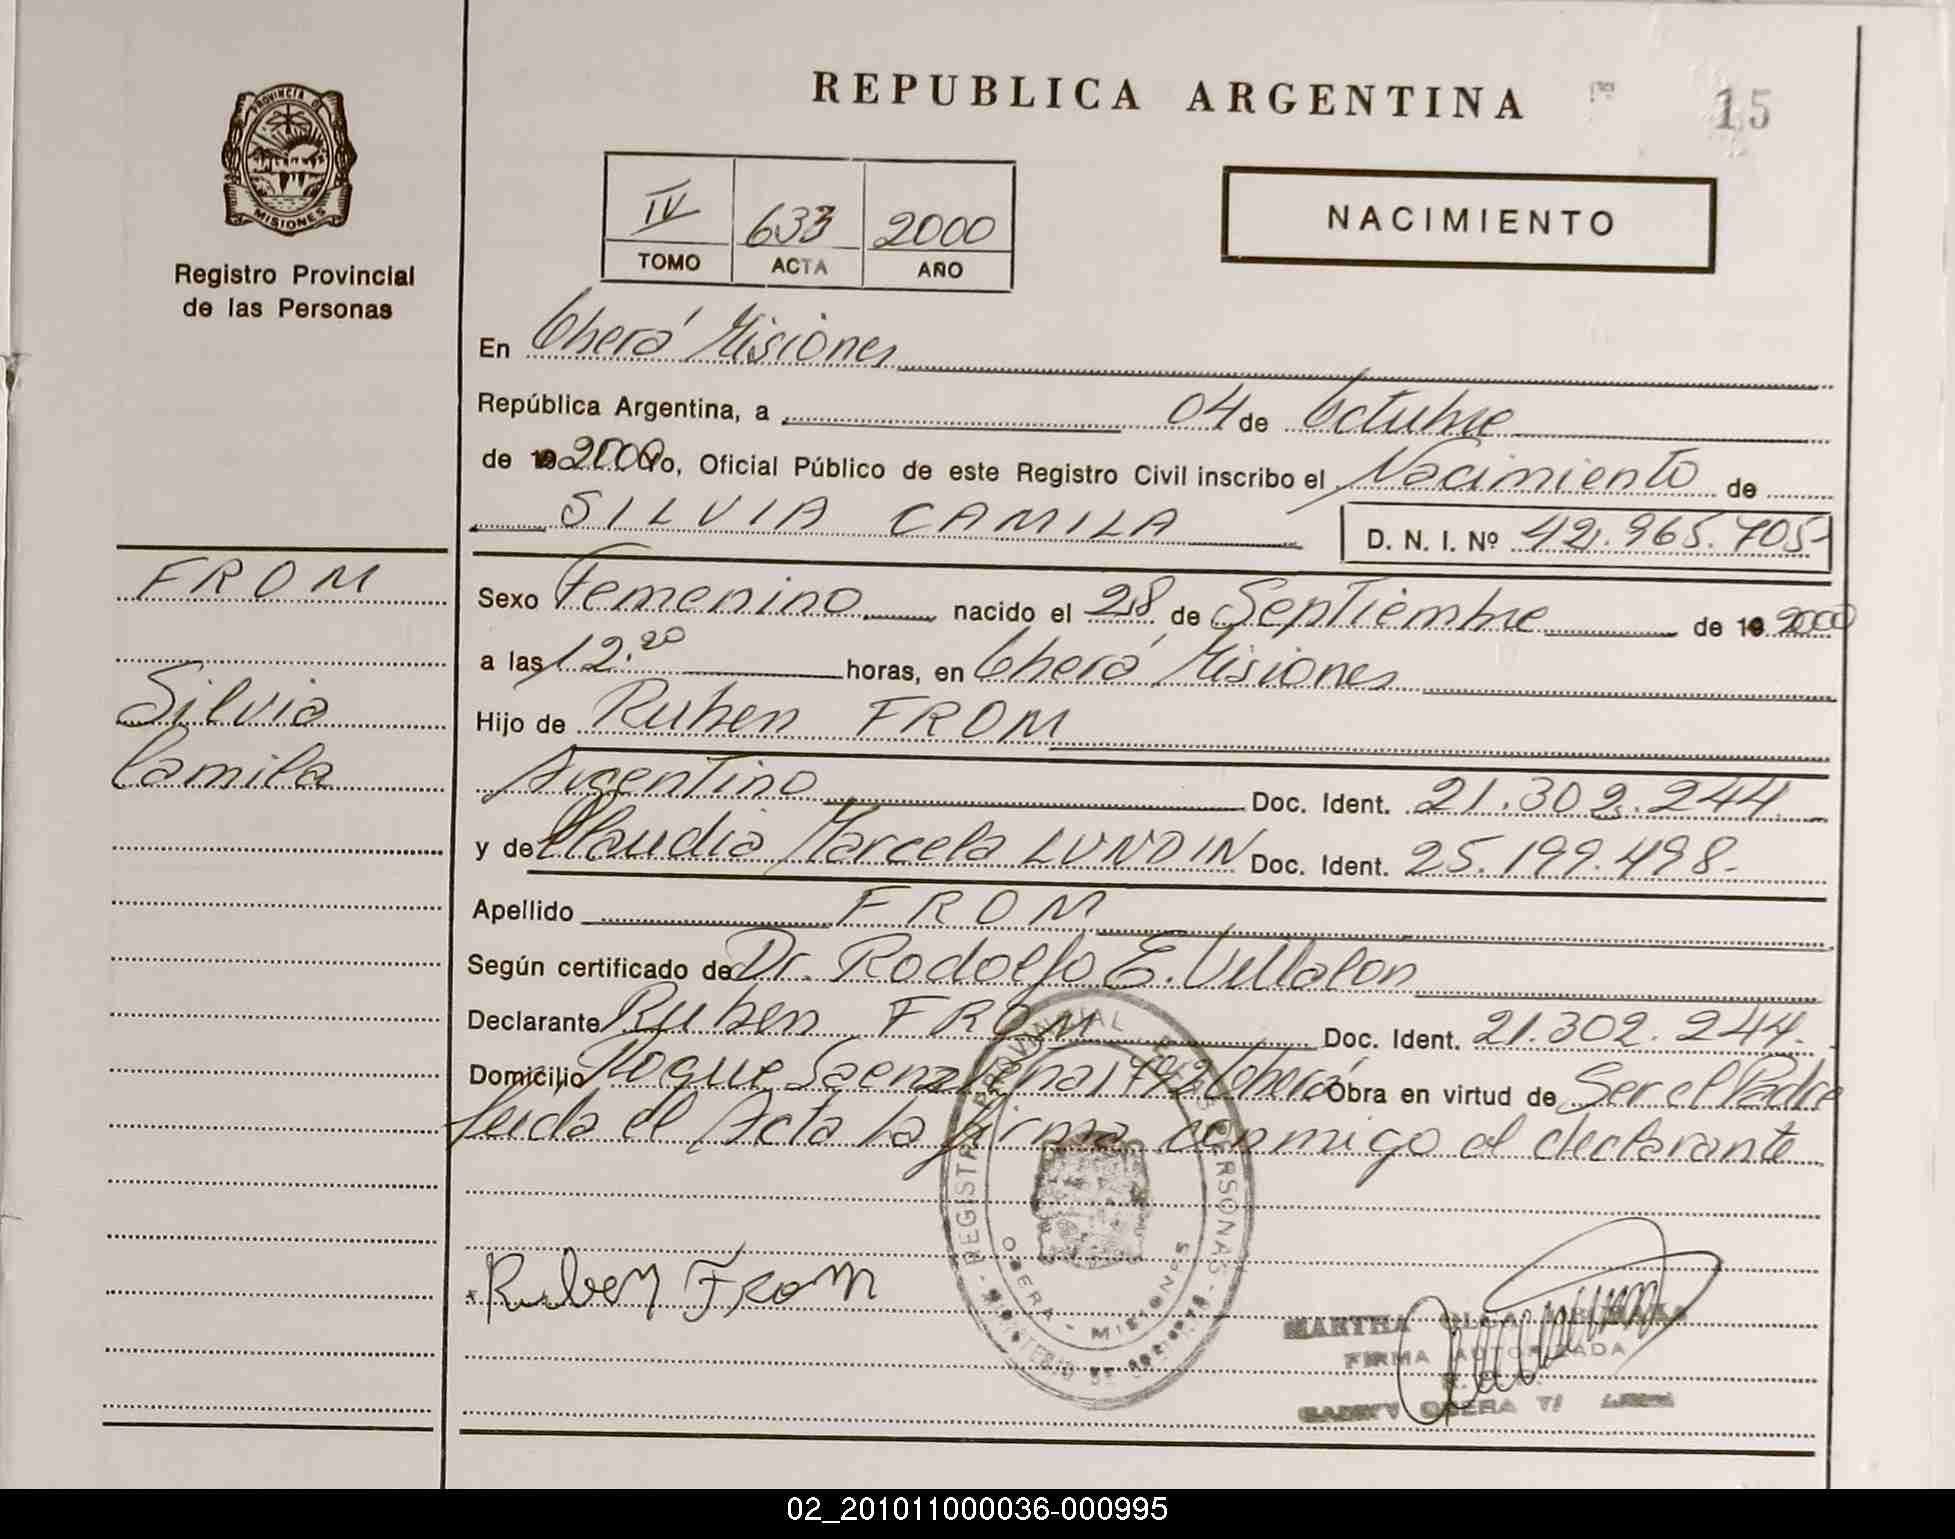 PROVINCIA DE
MISIONES
Registro Provincial
de las Personas
REPUBLICA ARGENTINA
15
IV 633 2000
TOMO ACTA AÑO
NACIMIENTO
En Oberá Misiones
República Argentina, a 04 de Octubre
de 19 2000 Yo, Oficial Público de este Registro Civil inscribo el Nacimiento de
SILVIA CAMILA D. N. I. Nº 42.965.705-
FROM
Silvia
Camila
Sexo Femenino nacido el 28 de Septiembre de 19 2000
a las 12.20 horas, en Oberá Misiones
Hijo de Ruben FROM
Argentino Doc. Ident. 21.302.244.
y de Claudia Marcela LUNDIN Doc. Ident. 25.199.498.-
Apellido FROM
Según certificado de Dr. Rodolfo E. Villalón
Declarante Ruben FROM Doc. Ident. 21.302.244.
Domicilio Roque Saenz Peña 1792 Oberá Obra en virtud de Ser el Padre
leida el Acta la firma conmigo el declarante
REGISTRO PROVINCIAL DE LAS PERSONAS
OBERA - MISIONES
MINISTERIO DE GOBIERNO
Ruben From
MARTHA OLGA
FIRMA AUTORIZADA
OBERA
02_201011000036-000995